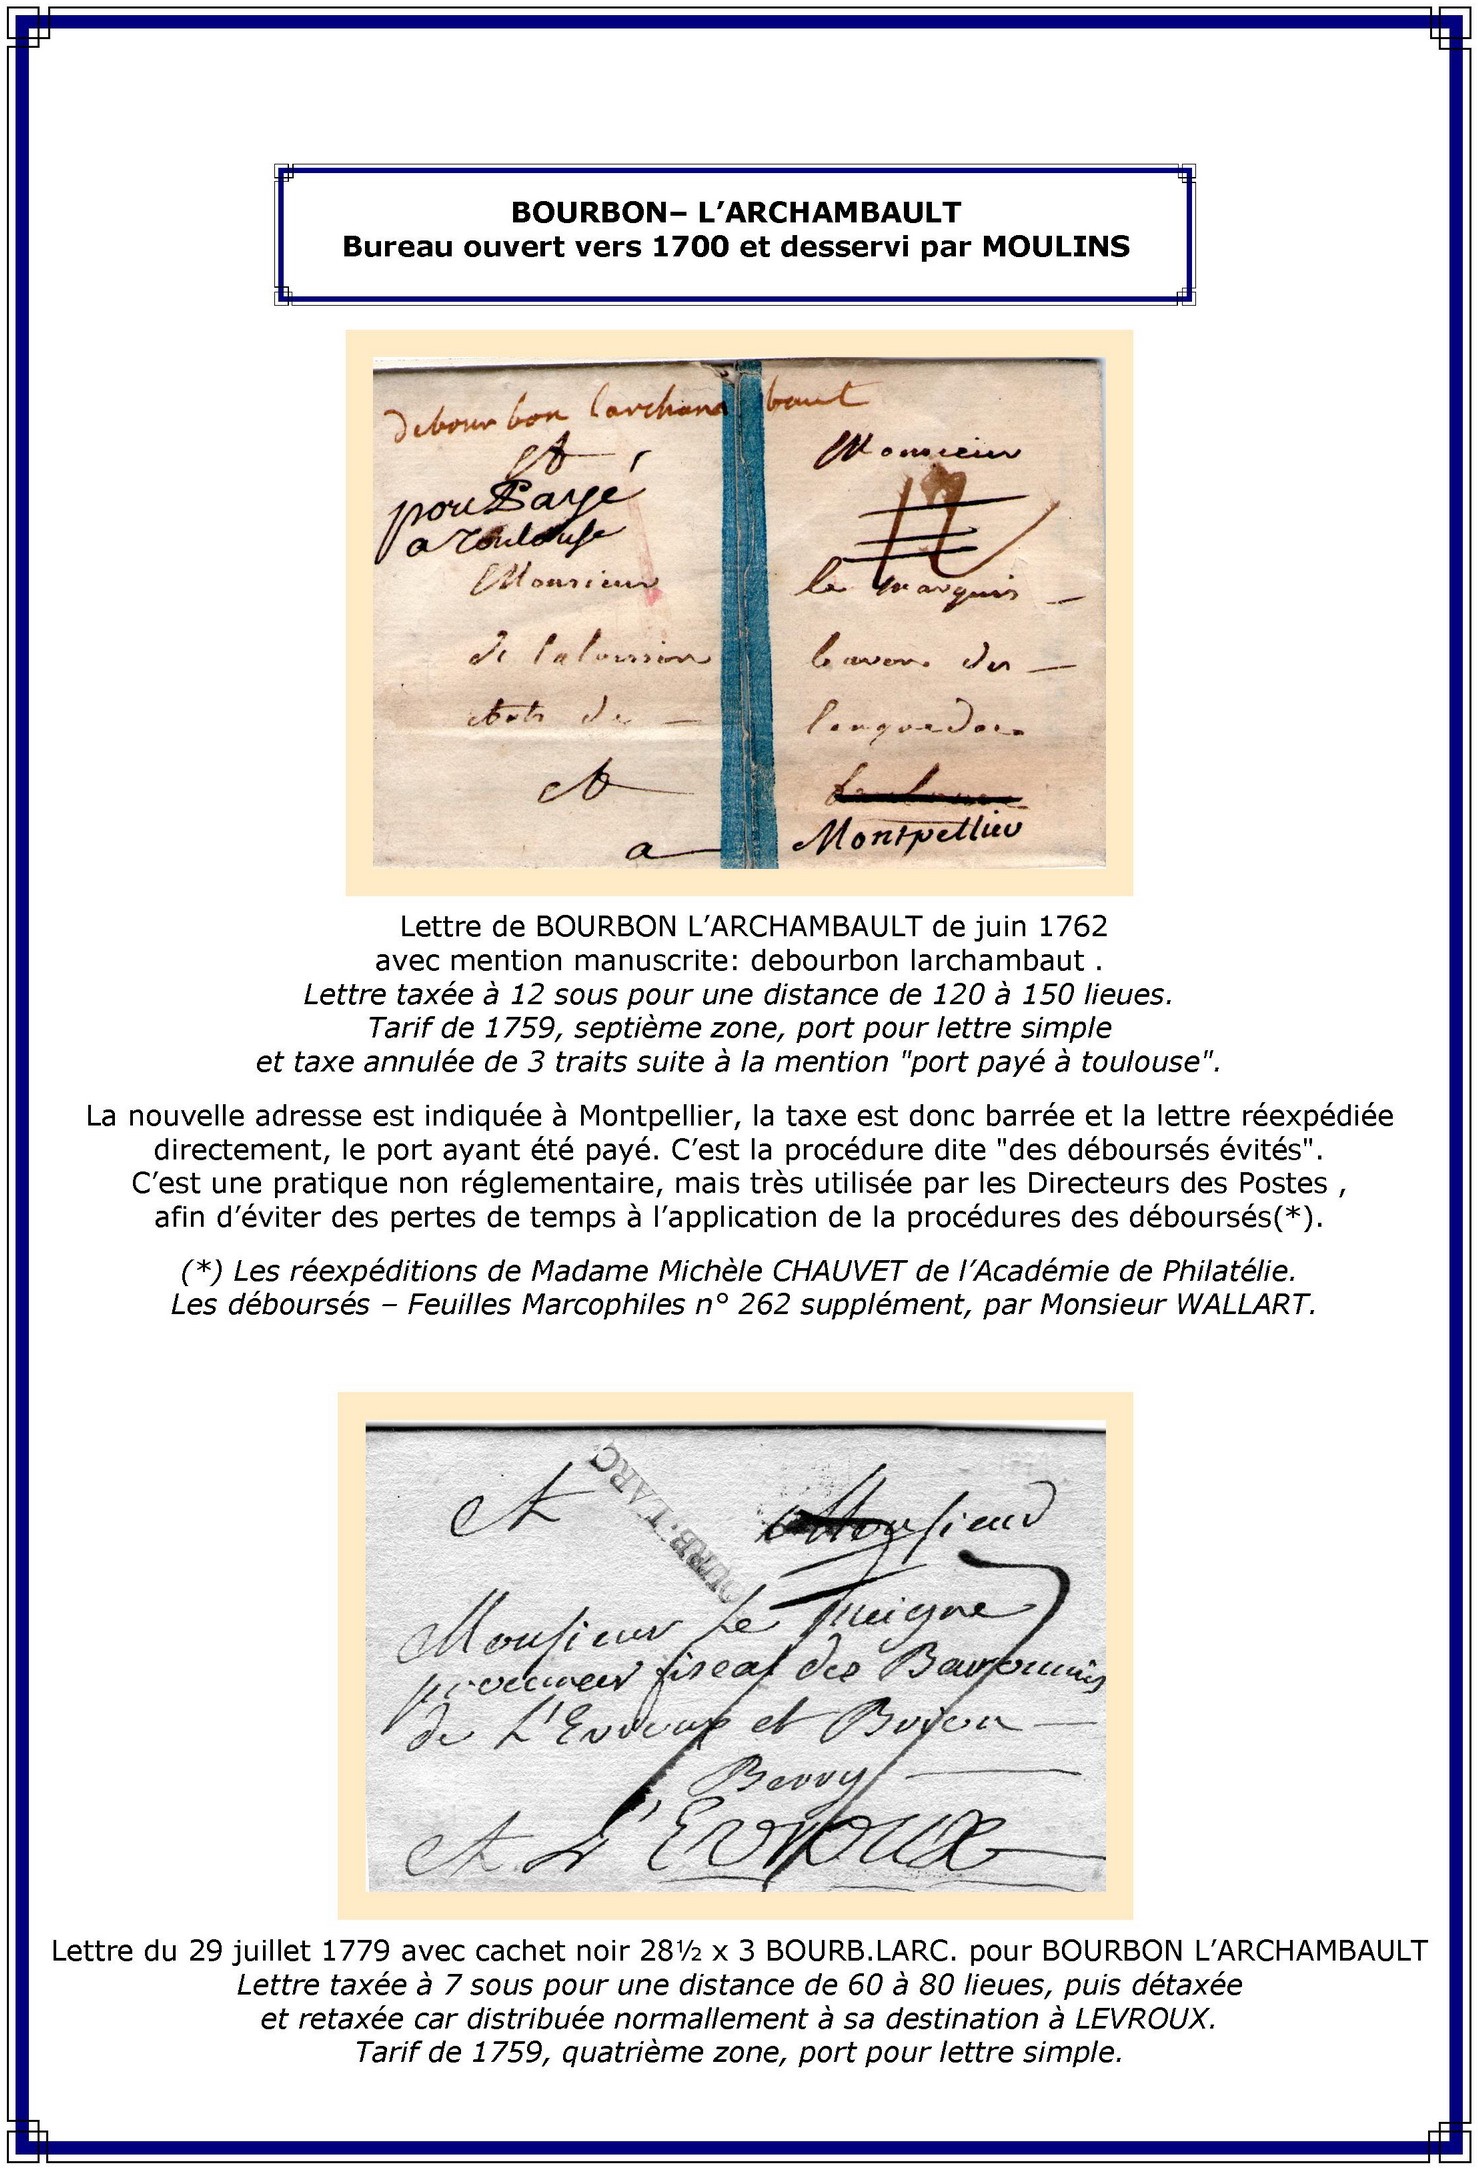 BOURBON– L’ARCHAMBAULT
Bureau ouvert vers 1700 et desservi par MOULINS
debourbon larchambaut
A Monsieur
port Payé
a Toulouse
12
Monsieur le marquis
de baron des
etats de languedoc
A
a Montpellier
Lettre de BOURBON L’ARCHAMBAULT de juin 1762
avec mention manuscrite: debourbon larchambaut .
Lettre taxée à 12 sous pour une distance de 120 à 150 lieues.
Tarif de 1759, septième zone, port pour lettre simple
et taxe annulée de 3 traits suite à la mention "port payé à toulouse".
La nouvelle adresse est indiquée à Montpellier, la taxe est donc barrée et la lettre réexpédiée
directement, le port ayant été payé. C’est la procédure dite "des déboursés évités".
C’est une pratique non réglementaire, mais très utilisée par les Directeurs des Postes ,
afin d’éviter des pertes de temps à l’application de la procédures des déboursés(*).
(*) Les réexpéditions de Madame Michèle CHAUVET de l’Académie de Philatélie.
Les déboursés – Feuilles Marcophiles n° 262 supplément, par Monsieur WALLART.
OURB.L'ARC
A Monsieur
7
Monsieur Le
procureur fiscal des Baronnies
de L'Evroux et
Berry
A L'Evroux
Lettre du 29 juillet 1779 avec cachet noir 28½ x 3 BOURB.LARC. pour BOURBON L’ARCHAMBAULT
Lettre taxée à 7 sous pour une distance de 60 à 80 lieues, puis détaxée
et retaxée car distribuée normallement à sa destination à LEVROUX.
Tarif de 1759, quatrième zone, port pour lettre simple.